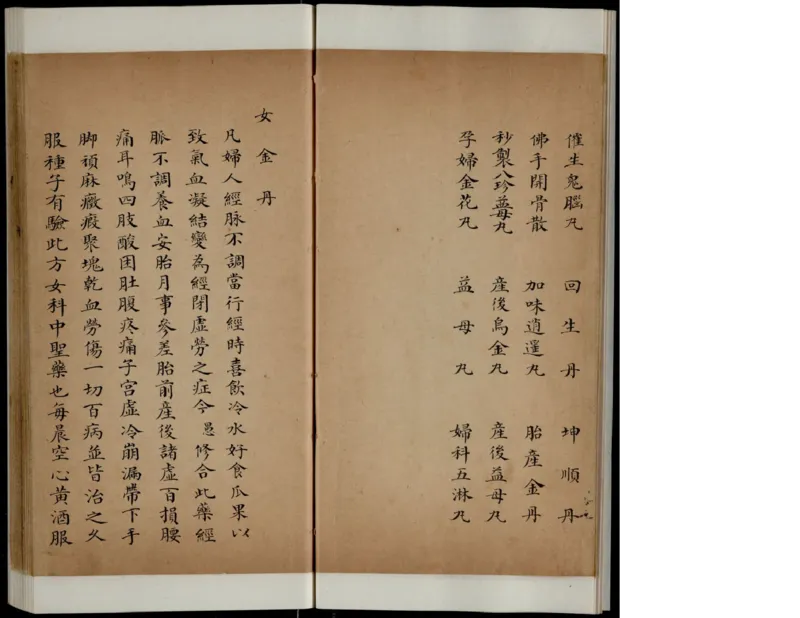 催生鬼腦丸 回生丹 坤順丹
佛手開骨散 加味逍遙丸 胎產金丹
秘製八珍益母丸 產後烏金丸 產後益母丸
孕婦金花丸 益母丸 婦科五淋丸
女金丹
凡婦人經脉不調當行經時喜飲冷水好食瓜果以
致氣血凝結變為經閉虛勞之症今愚修合此藥經
脈不調養血安胎月事參差胎前產後諸虛百損腰
痛耳鳴四肢酸困肚腹疼痛子宮虛冷崩漏帶下手
脚頑麻癥瘕聚塊乾血勞傷一切百病並皆治之久
服種子有驗此方女科中聖藥也每晨空心黃酒服